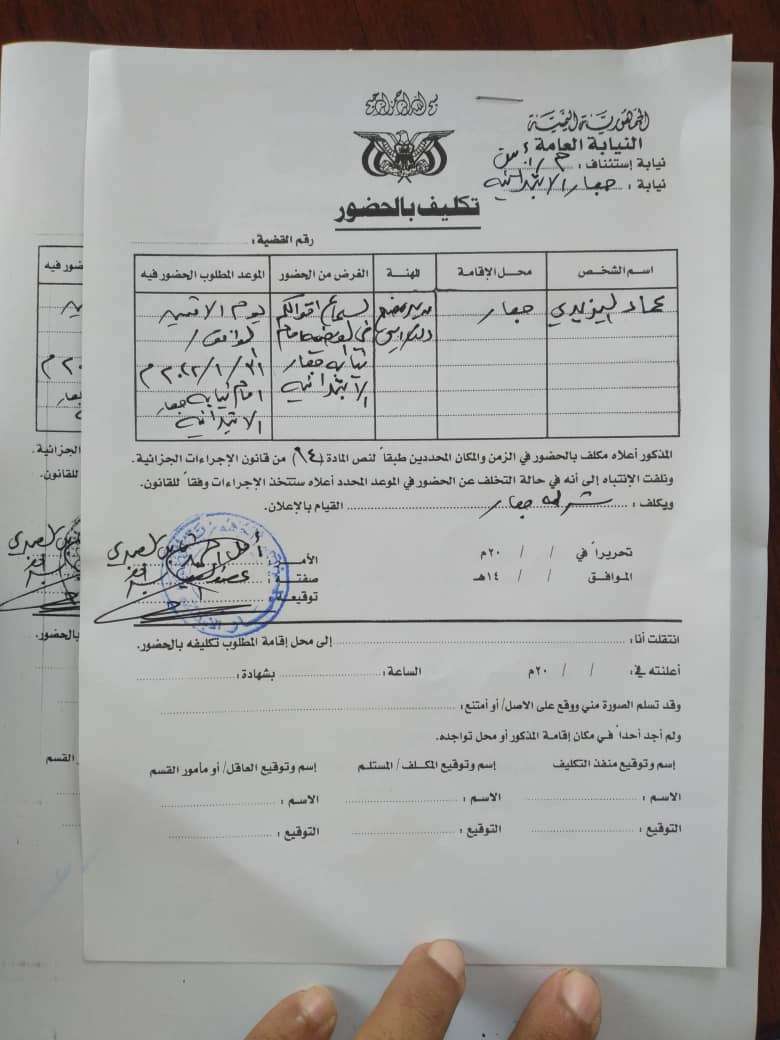 بسم الله الرحمن الرحيم
الجمهورية اليمنية
النيابة العامة
نيابة إستئناف : م/ أبين
نيابة : جعار الابتدائية
تكليف بالحضور
رقم القضية :
اسم الشخص | محل الإقامة | المهنة | الغرض من الحضور | الموعد المطلوب الحضور فيه
عماد اليزيدي | جعار | مدير مصنع | لسماع اقوالكم | يوم الاثنين
في القضية امام | الموافق /
نيابة جعار | ٢٠٢٢/١/٣١ م
الابتدائية | امام نيابة جعار
الابتدائية
المذكور أعلاه مكلف بالحضور في الزمن والمكان المحددين طبقاً لنص المادة (٦٤) من قانون الإجراءات الجزائية .
ونلفت الإنتباه إلى أنه في حالة التخلف عن الحضور في الموعد المحدد أعلاه ستتخذ الإجراءات وفقاً للقانون.
ويكلف : شرطه جعار القيام بالإعلان.
تحريراً في / / ٢٠م
الموافق / / ١٤هـ
الأمر :
صفته :
توقيعه :
انتقلت أنا : إلى محل إقامة المطلوب تكليفه بالحضور.
أعلنته في : / / ٢٠م الساعة : بشهادة :
وقد تسلم الصورة مني ووقع على الاصل/ أو أمتنع :
ولم أجد أحداً في مكان إقامة المذكور أو محل تواجده.
إسم وتوقيع منفذ التكليف إسم وتوقيع المكلف/ المستلم إسم وتوقيع العاقل/ أو مأمور القسم
الاسم : الاسم : الاسم :
التوقيع : التوقيع : التوقيع :